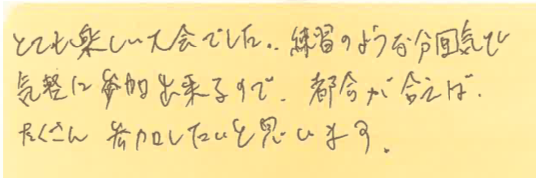 とても楽しい大会でした.. 練習のような分囲気で
気軽に参加出来るので、都合が合えば、
たくさん 参加したいと思います.